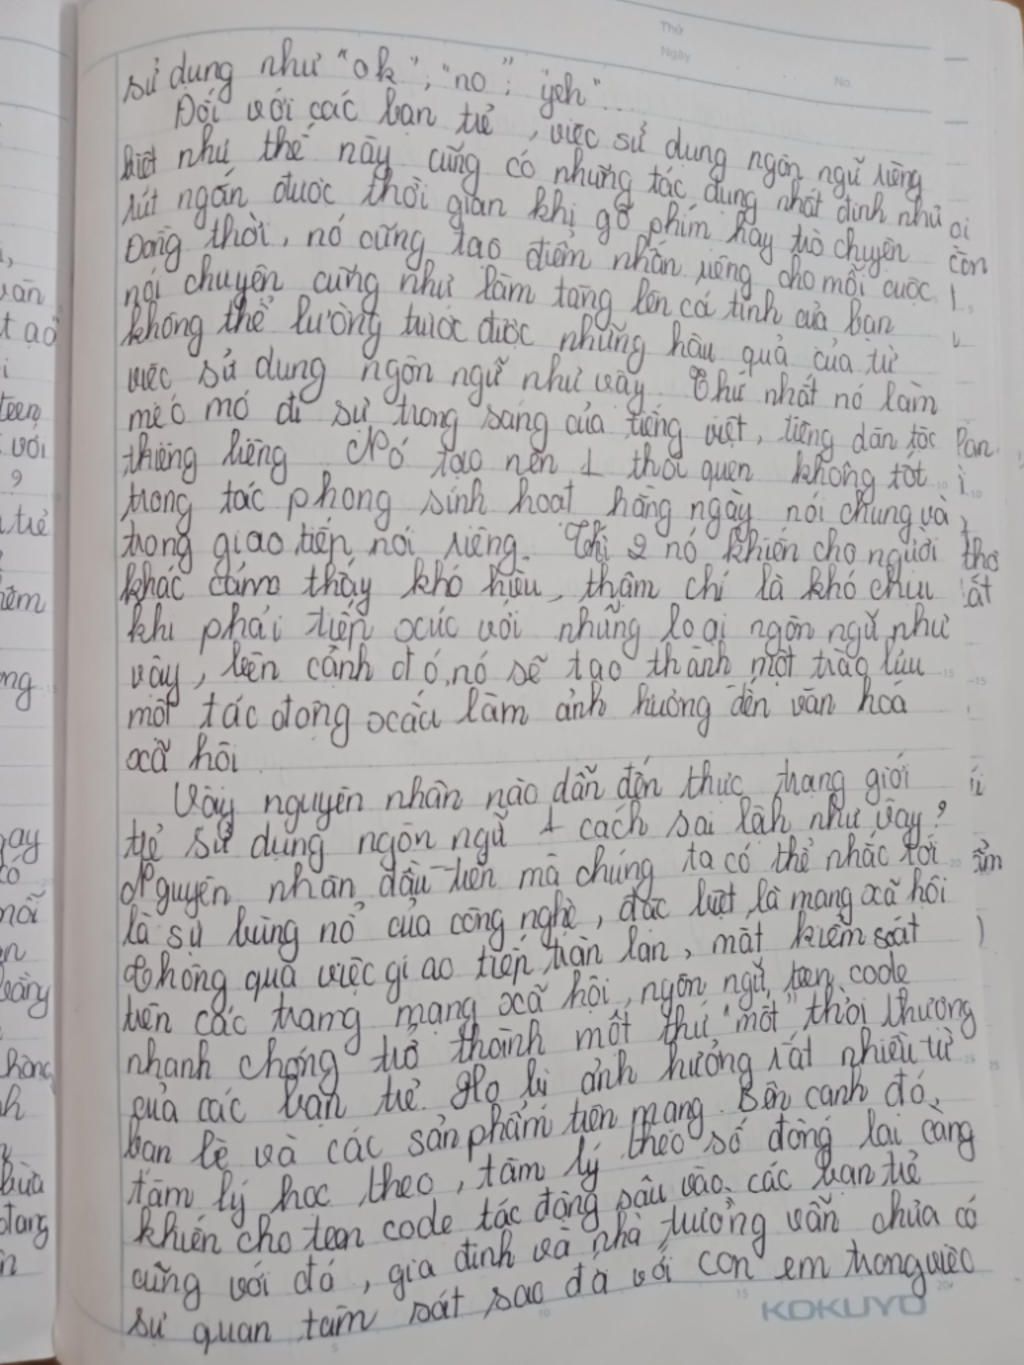 Thứ
Ngày
No.
sử dụng như "ok", "no", "yeh"...
Đối với các bạn trẻ, việc sử dụng ngôn ngữ riêng
biệt như thế này cũng có những tác dụng nhất định như
rút ngắn được thời gian khi gõ phím hay trò chuyện
Đồng thời, nó cũng tạo điểm nhấn riêng cho mỗi cuộc
nói chuyện cũng như làm tăng lên cá tính của bạn
không thể lường trước được những hậu quả của từ
việc sử dụng ngôn ngữ như vậy. Thứ nhất nó làm
méo mó đi sự trong sáng của tiếng việt, tiếng dân tộc
thiêng liêng Nó tạo nên 1 thói quen không tốt
trong tác phong sinh hoạt hằng ngày nói chung và
trong giao tiếp nói riêng. Thứ 2 nó khiến cho người
khác cảm thấy khó hiểu, thậm chí là khó chịu
khi phải tiếp xúc với những loại ngôn ngữ như
vậy, bên cạnh đó, nó sẽ tạo thành một trào lưu
một tác động xấu làm ảnh hưởng đến văn hoá
xã hội
Vậy nguyên nhân nào dẫn đến thực trạng giới
trẻ sử dụng ngôn ngữ 1 cách sai lầh như vậy?
Nguyên nhân đầu tiên mà chúng ta có thể nhắc tới
là sự bùng nổ của công nghệ, đặc biệt là mạng xã hội
Thông qua việc giao tiếp tràn lan, mất kiểm soát
trên các trang mạng xã hội, ngôn ngữ teen code
nhanh chóng trở thành một thứ "mốt" thời thượng
của các bạn trẻ. Họ bị ảnh hưởng rất nhiều từ
bạn bè và các sản phẩm trên mạng. Bên cạnh đó,
tâm lý học theo, tâm lý theo số đông lại càng
khiến cho teen code tác động sâu vào các bạn trẻ
cũng với đó, gia đình và nhà trường vẫn chưa có
sự quan tâm sát sao đa với con em trong việc
KOKUYO